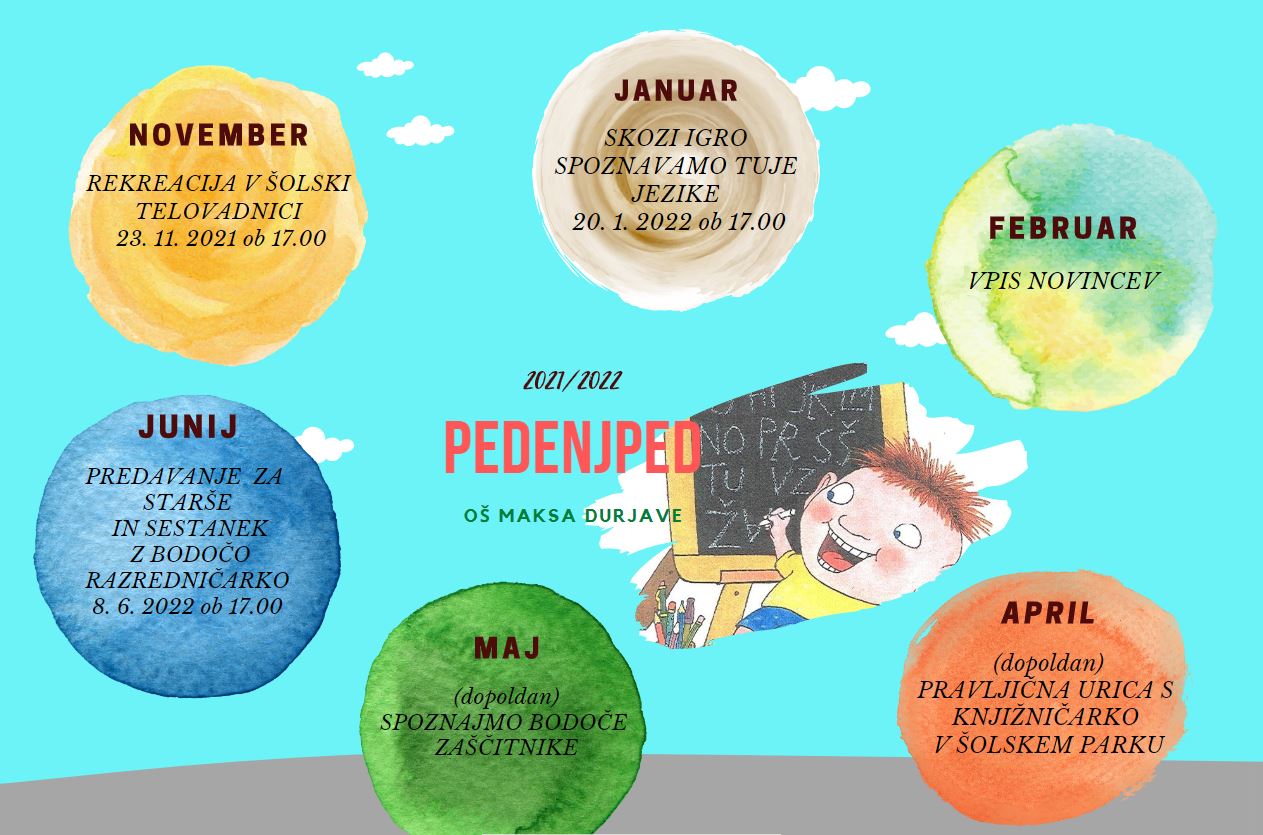 NOVEMBER
REKREACIJA V ŠOLSKI
TELOVADNICI
23. 11. 2021 ob 17.00
JANUAR
SKOZI IGRO
SPOZNAVAMO TUJE
JEZIKE
20. 1. 2022 ob 17.00
FEBRUAR
VPIS NOVINCEV
2021/2022
PEDENJPED
OŠ MAKSA DURJAVE
NO PR SŠ
TU VZ
JUNIJ
PREDAVANJE ZA
STARŠE
IN SESTANEK
Z BODOČO
RAZREDNIČARKO
8. 6. 2022 ob 17.00
MAJ
(dopoldan)
SPOZNAJMO BODOČE
ZAŠČITNIKE
APRIL
(dopoldan)
PRAVLJIČNA URICA S
KNJIŽNIČARKO
V ŠOLSKEM PARKU